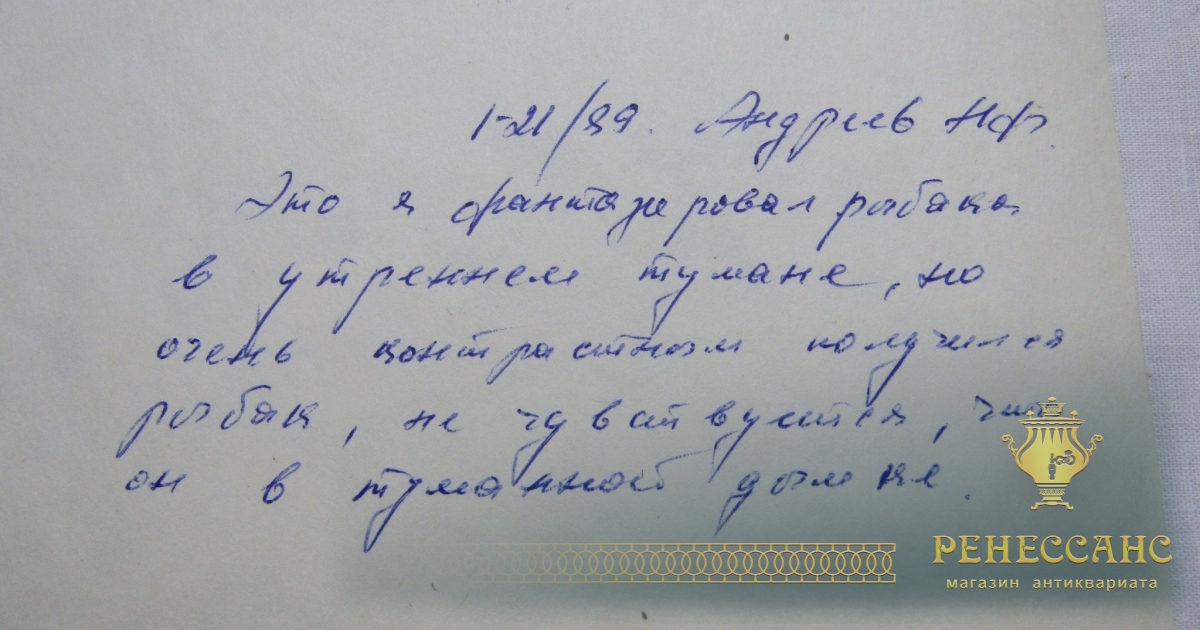 1-21/89. Андреев НФ
Это я фантазировал рыбака
в утреннем тумане, но
очень контрастным получился
рыбак, не чувствуется, что
он в туманной дымке.
РЕНЕССАНС
магазин антиквариата